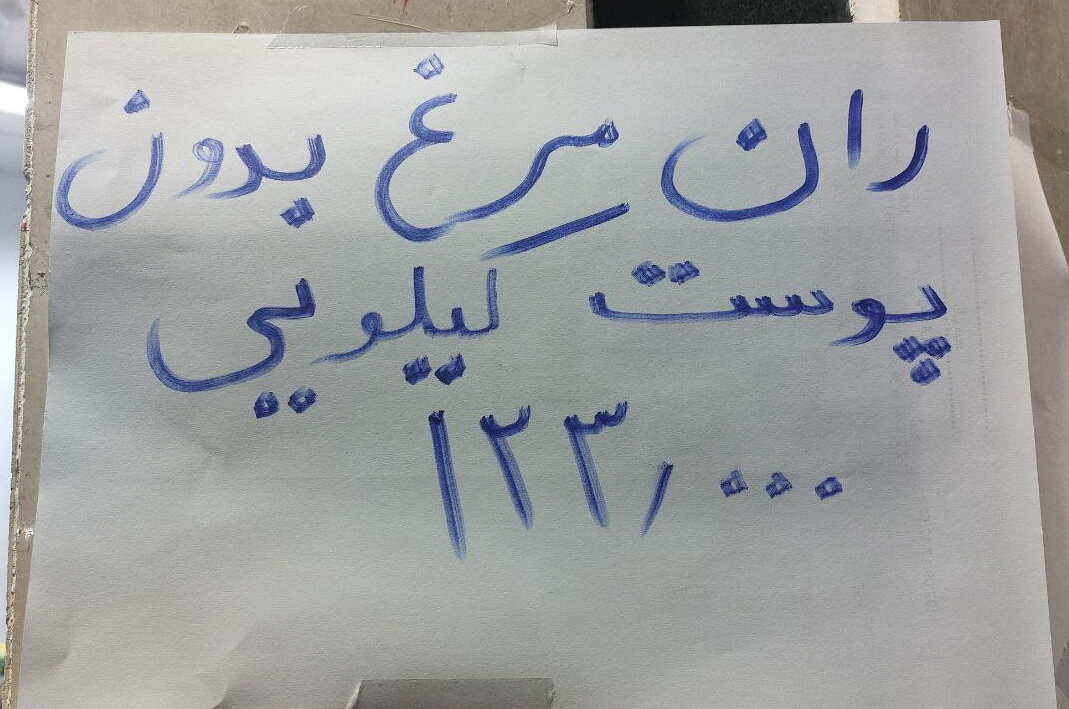 ران مرغ بدون
پوست کیلویی
۱۲۳٫۰۰۰